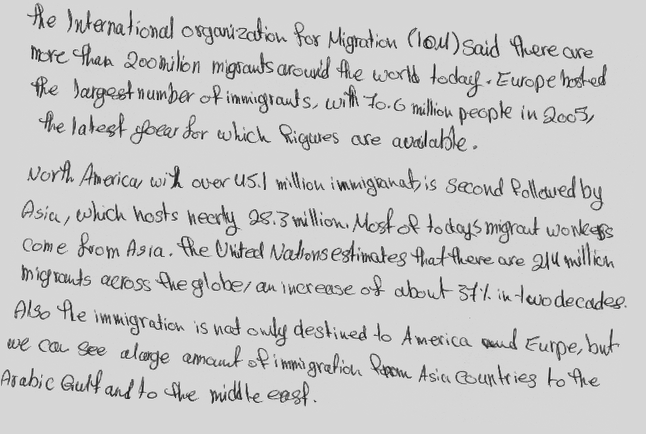 The International organization for Migration (IOM) said there are
more than 200 million migrants around the world today. Europe hosted
the largest number of immigrants, with 70.6 million people in 2005,
the latest year for which figures are available.
North America, with over 45.1 million immigranats, is second followed by
Asia, which hosts neerly 28.3 million. Most of todays migrant workers
come from Asia. The United Nations estimates that there are 214 million
migrants across the globe, an increase of about 37% in two decades.
Also the immigration is not only destined to America and Eurpe, but
we can see alarge amount of immigration from Asia countries to the
Arabic Gulf and to the middle east.